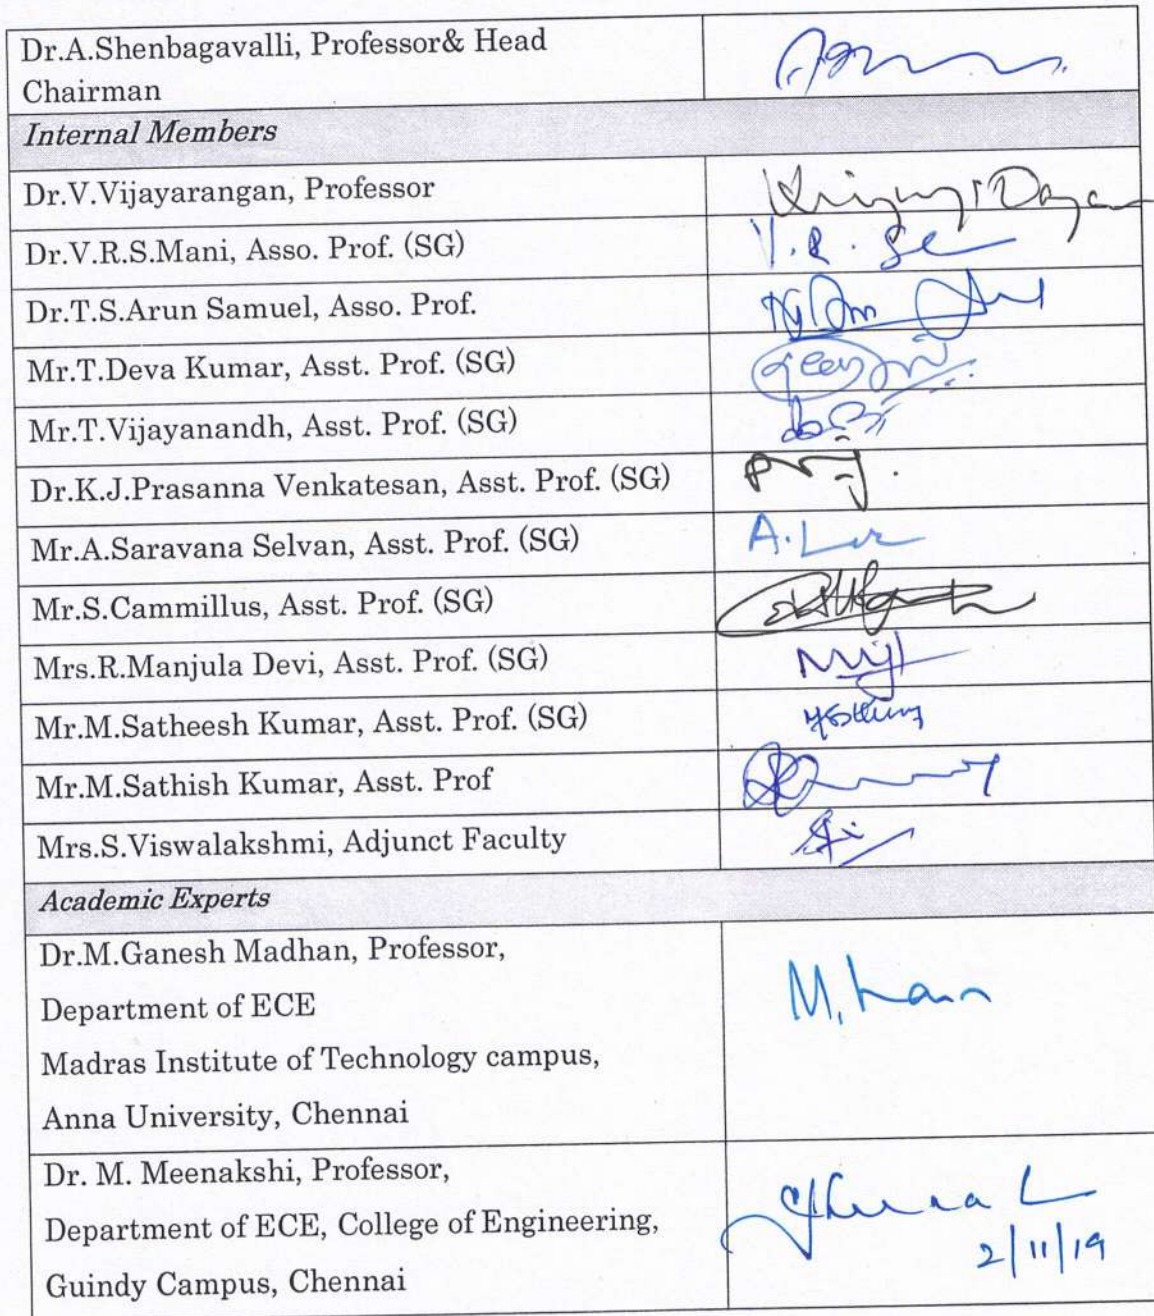 Dr.A.Shenbagavalli, Professor& Head
Chairman
Internal Members
Dr.V.Vijayarangan, Professor
Dr.V.R.S.Mani, Asso. Prof. (SG)
Dr.T.S.Arun Samuel, Asso. Prof.
Mr.T.Deva Kumar, Asst. Prof. (SG)
Mr.T.Vijayanandh, Asst. Prof. (SG)
Dr.K.J.Prasanna Venkatesan, Asst. Prof. (SG)
Mr.A.Saravana Selvan, Asst. Prof. (SG)
Mr.S.Cammillus, Asst. Prof. (SG)
Mrs.R.Manjula Devi, Asst. Prof. (SG)
Mr.M.Satheesh Kumar, Asst. Prof. (SG)
Mr.M.Sathish Kumar, Asst. Prof
Mrs.S.Viswalakshmi, Adjunct Faculty
Academic Experts
Dr.M.Ganesh Madhan, Professor,
Department of ECE
Madras Institute of Technology campus,
Anna University, Chennai
Dr. M. Meenakshi, Professor,
Department of ECE, College of Engineering,
Guindy Campus, Chennai
2/11/19